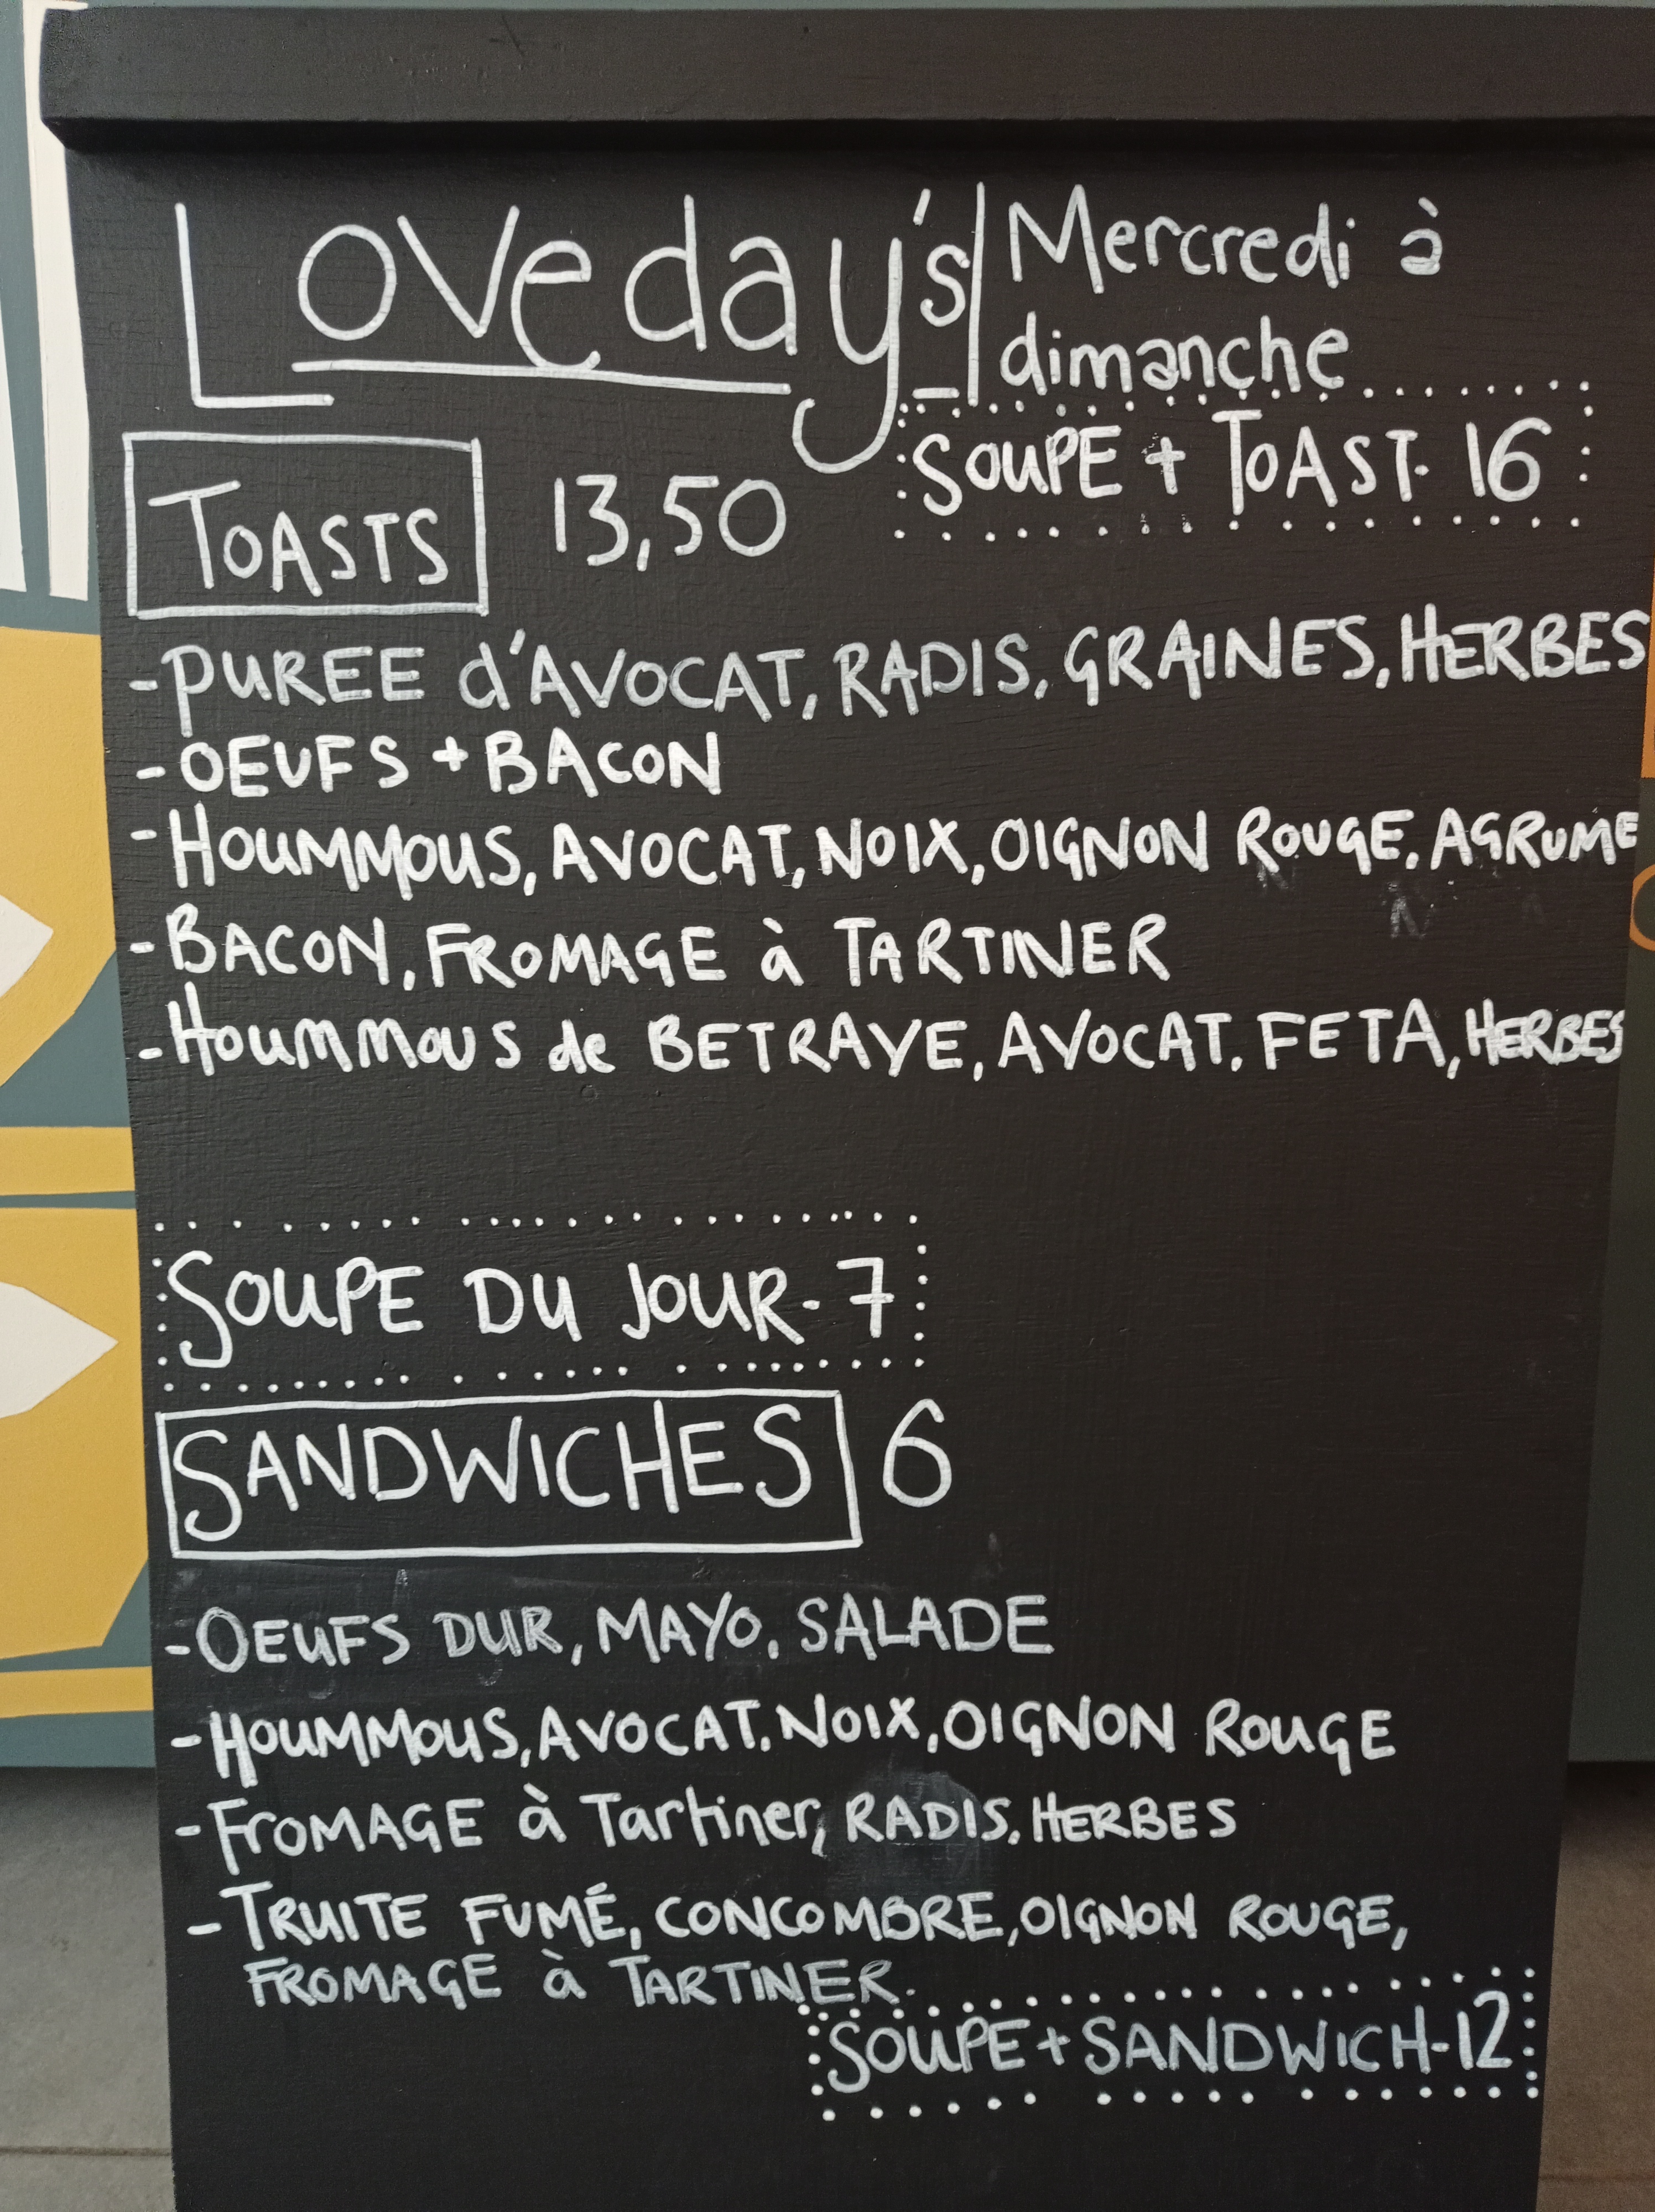 Loveday's
Mercredi à
dimanche
SOUPE + TOAST. 16
TOASTS 13,50
- PUREE d'AVOCAT, RADIS, GRAINES, HERBES
- OEUFS + BACON
- HOUMMOUS, AVOCAT, NOIX, OIGNON ROUGE, AGRUME
- BACON, FROMAGE à TARTINER
- HOUMMOUS de BETRAVE, AVOCAT, FETA, HERBES
SOUPE DU JOUR - 7
SANDWICHES 6
- OEUFS DUR, MAYO, SALADE
- HOUMMOUS, AVOCAT, NOIX, OIGNON ROUGE
- FROMAGE à Tartiner, RADIS, HERBES
- TRUITE FUMÉ, CONCOMBRE, OIGNON ROUGE,
FROMAGE à TARTINER.
SOUPE + SANDWICH - 12